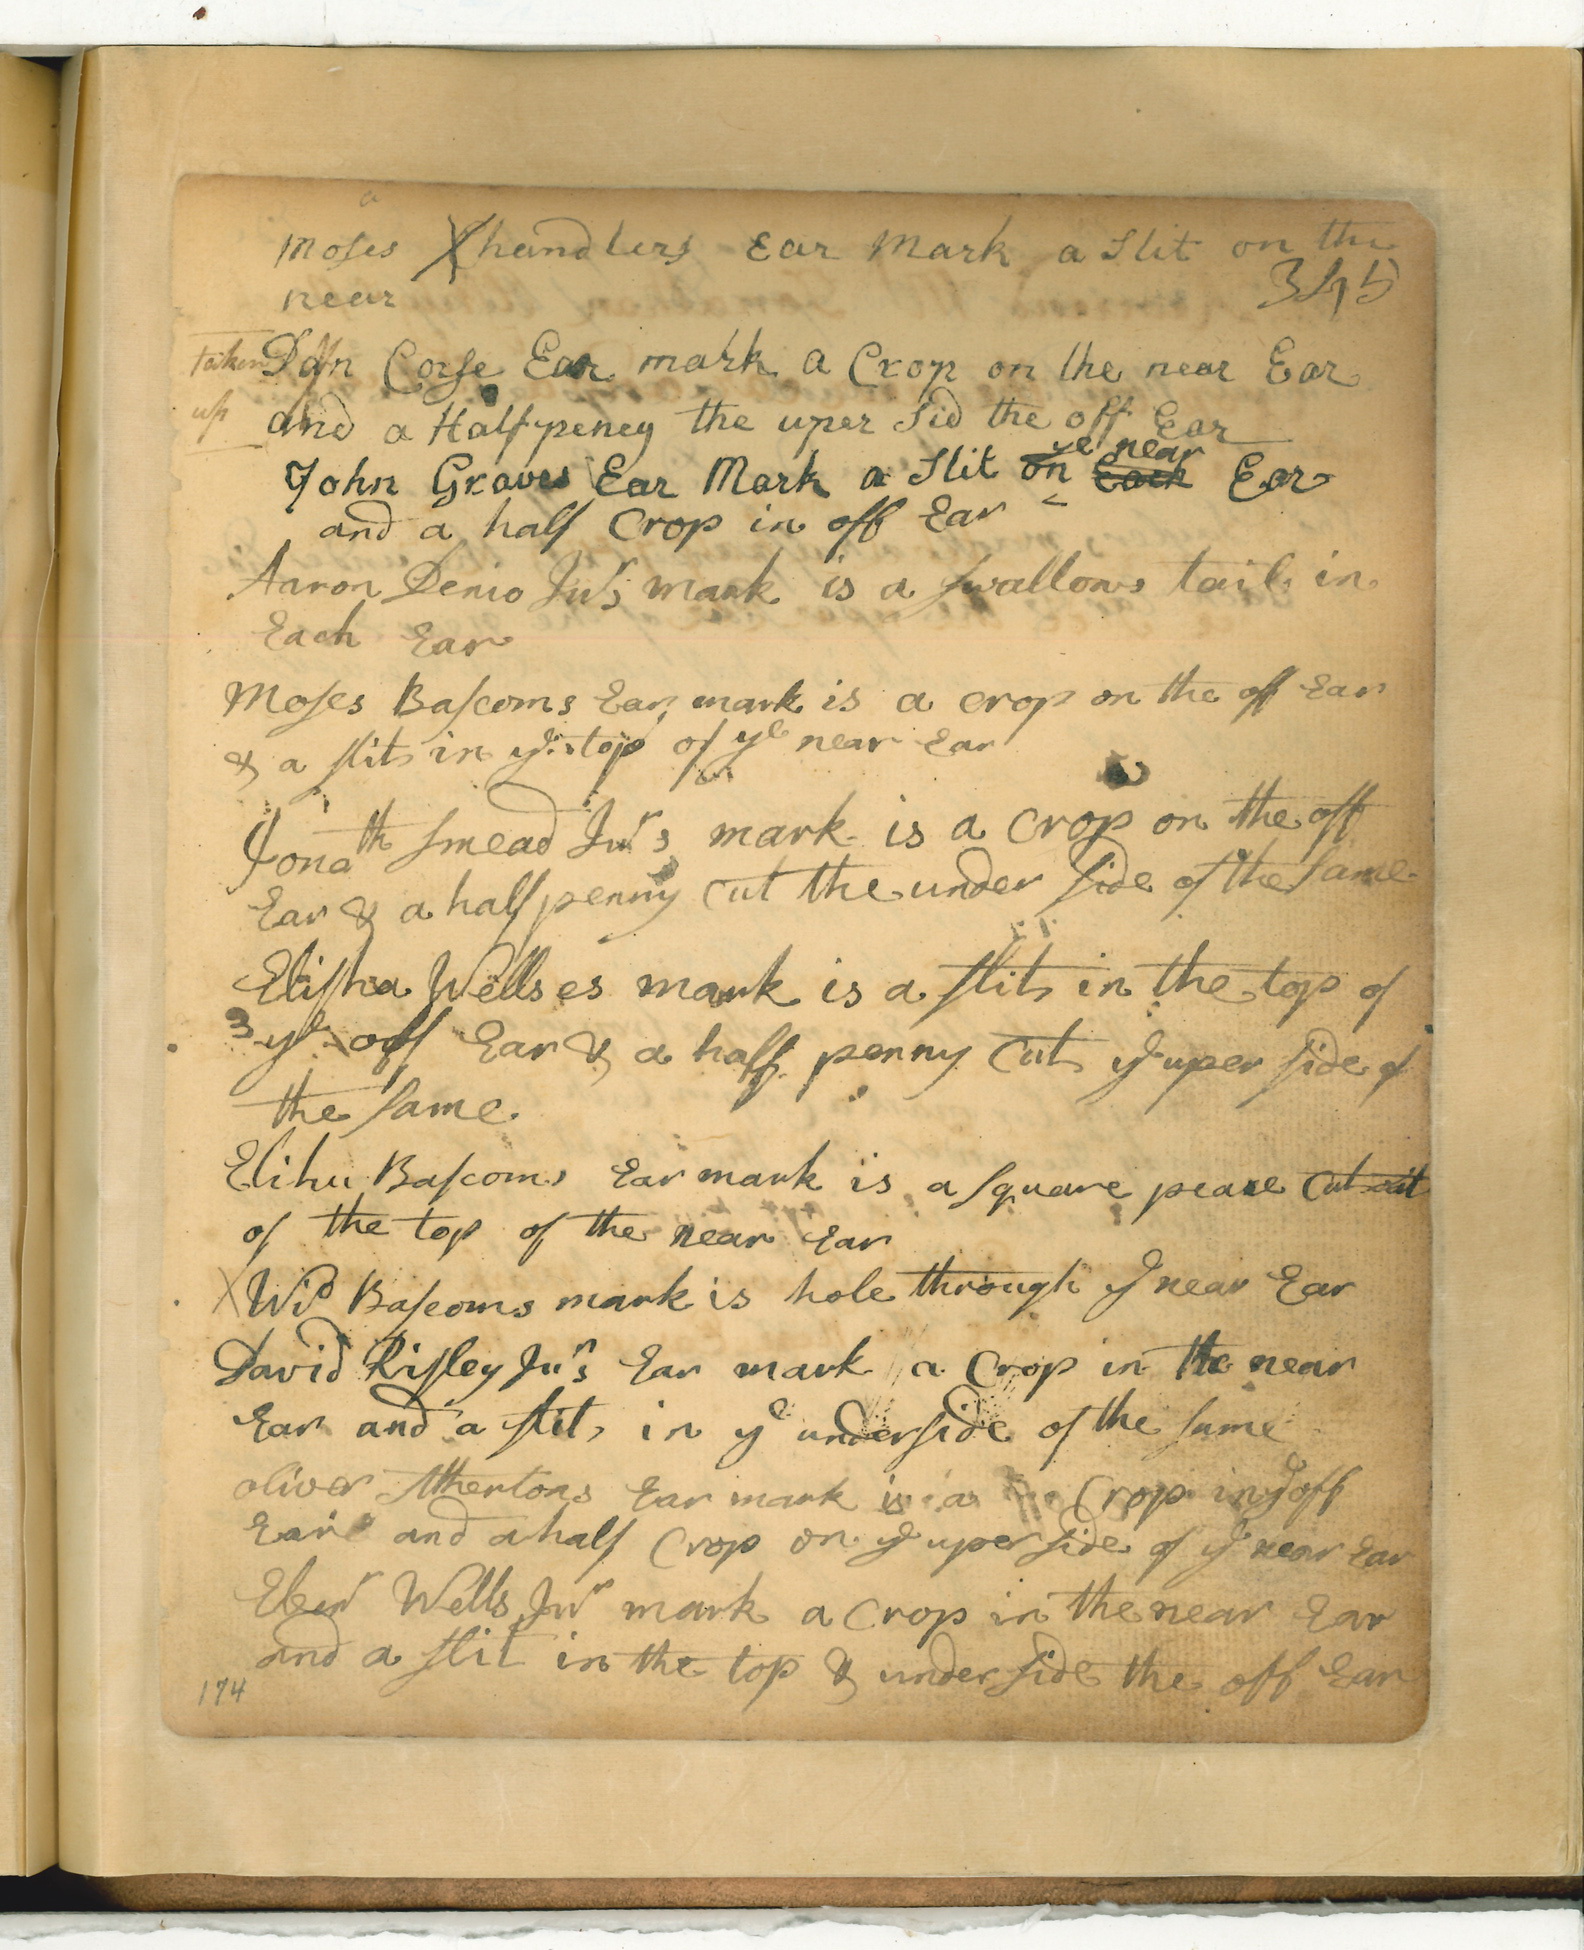 Moses Chandlers Ear Mark a Slit on the
near 345
taken up
Dan Corse Ear mark a Crop on the near Ear
and a Halfpeney the uper Sid the off Ear
ye near
John Graves Ear Mark a Slit on Each Ear
and a half Crop in off Ear
Aaron Denio Jurs mark is a swallows tail in
Each Ear
Moses Bascoms Ear mark is a crop on the off Ear
& a slit in ye top of ye near Ear
Jonath Smead Jurs mark is a Crop on the off
Ear & a half penny cut the under side of the same
Elisha Wellses mark is a slit in the top of
ye off Ear & a half penny Cut ye uper side of
the same.
Elihu Bascoms Ear mark is a square peace Cut out
of the top of the near Ear
X Wid Bascoms mark is hole through ye near Ear
David Risley Jurs Ear mark a Crop in the near
Ear and a slit in ye underside of the same
oliver Athertons Ear mark is a Crop in ye off
Ear and a half Crop on ye uper side of ye near Ear
Ebenr Wells Jur mark a Crop in the near Ear
and a slit in the top & under side the off Ear
174